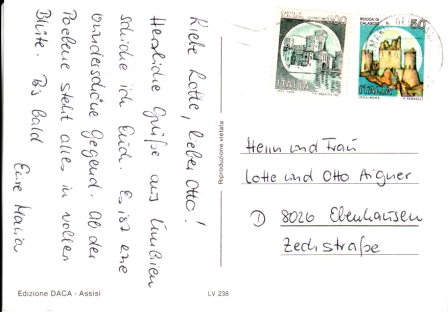 Liebe Lotte, lieber Otto!
Herzliche Grüße aus Umbrien
schicke ich Euch. Es ist eine
wunderschöne Gegend. Ab der
Poebene steht alles in vollen
Blüte. Bis bald
Eure Maria
Edizione DACA - Assisi
Riproduzione vietata
LV 238
ITALIA
ROCCA DI
CALASCIO
50
ITALIA
Herrn und Frau
Lotte und Otto Aigner
D 8026 Ebenhausen
Zechstraße